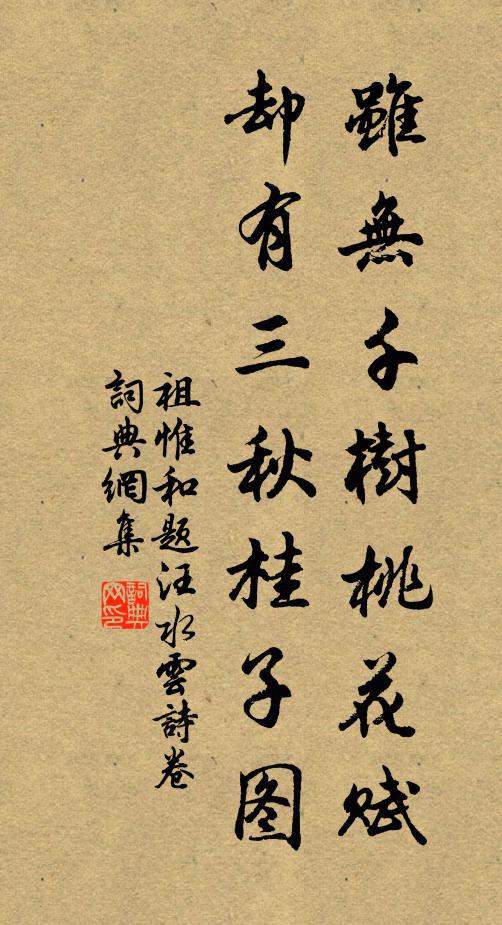 雖無千樹桃花賦
却有三秋桂子图
祖惟和题汪水雲詩卷
詞典網集
詞典网印